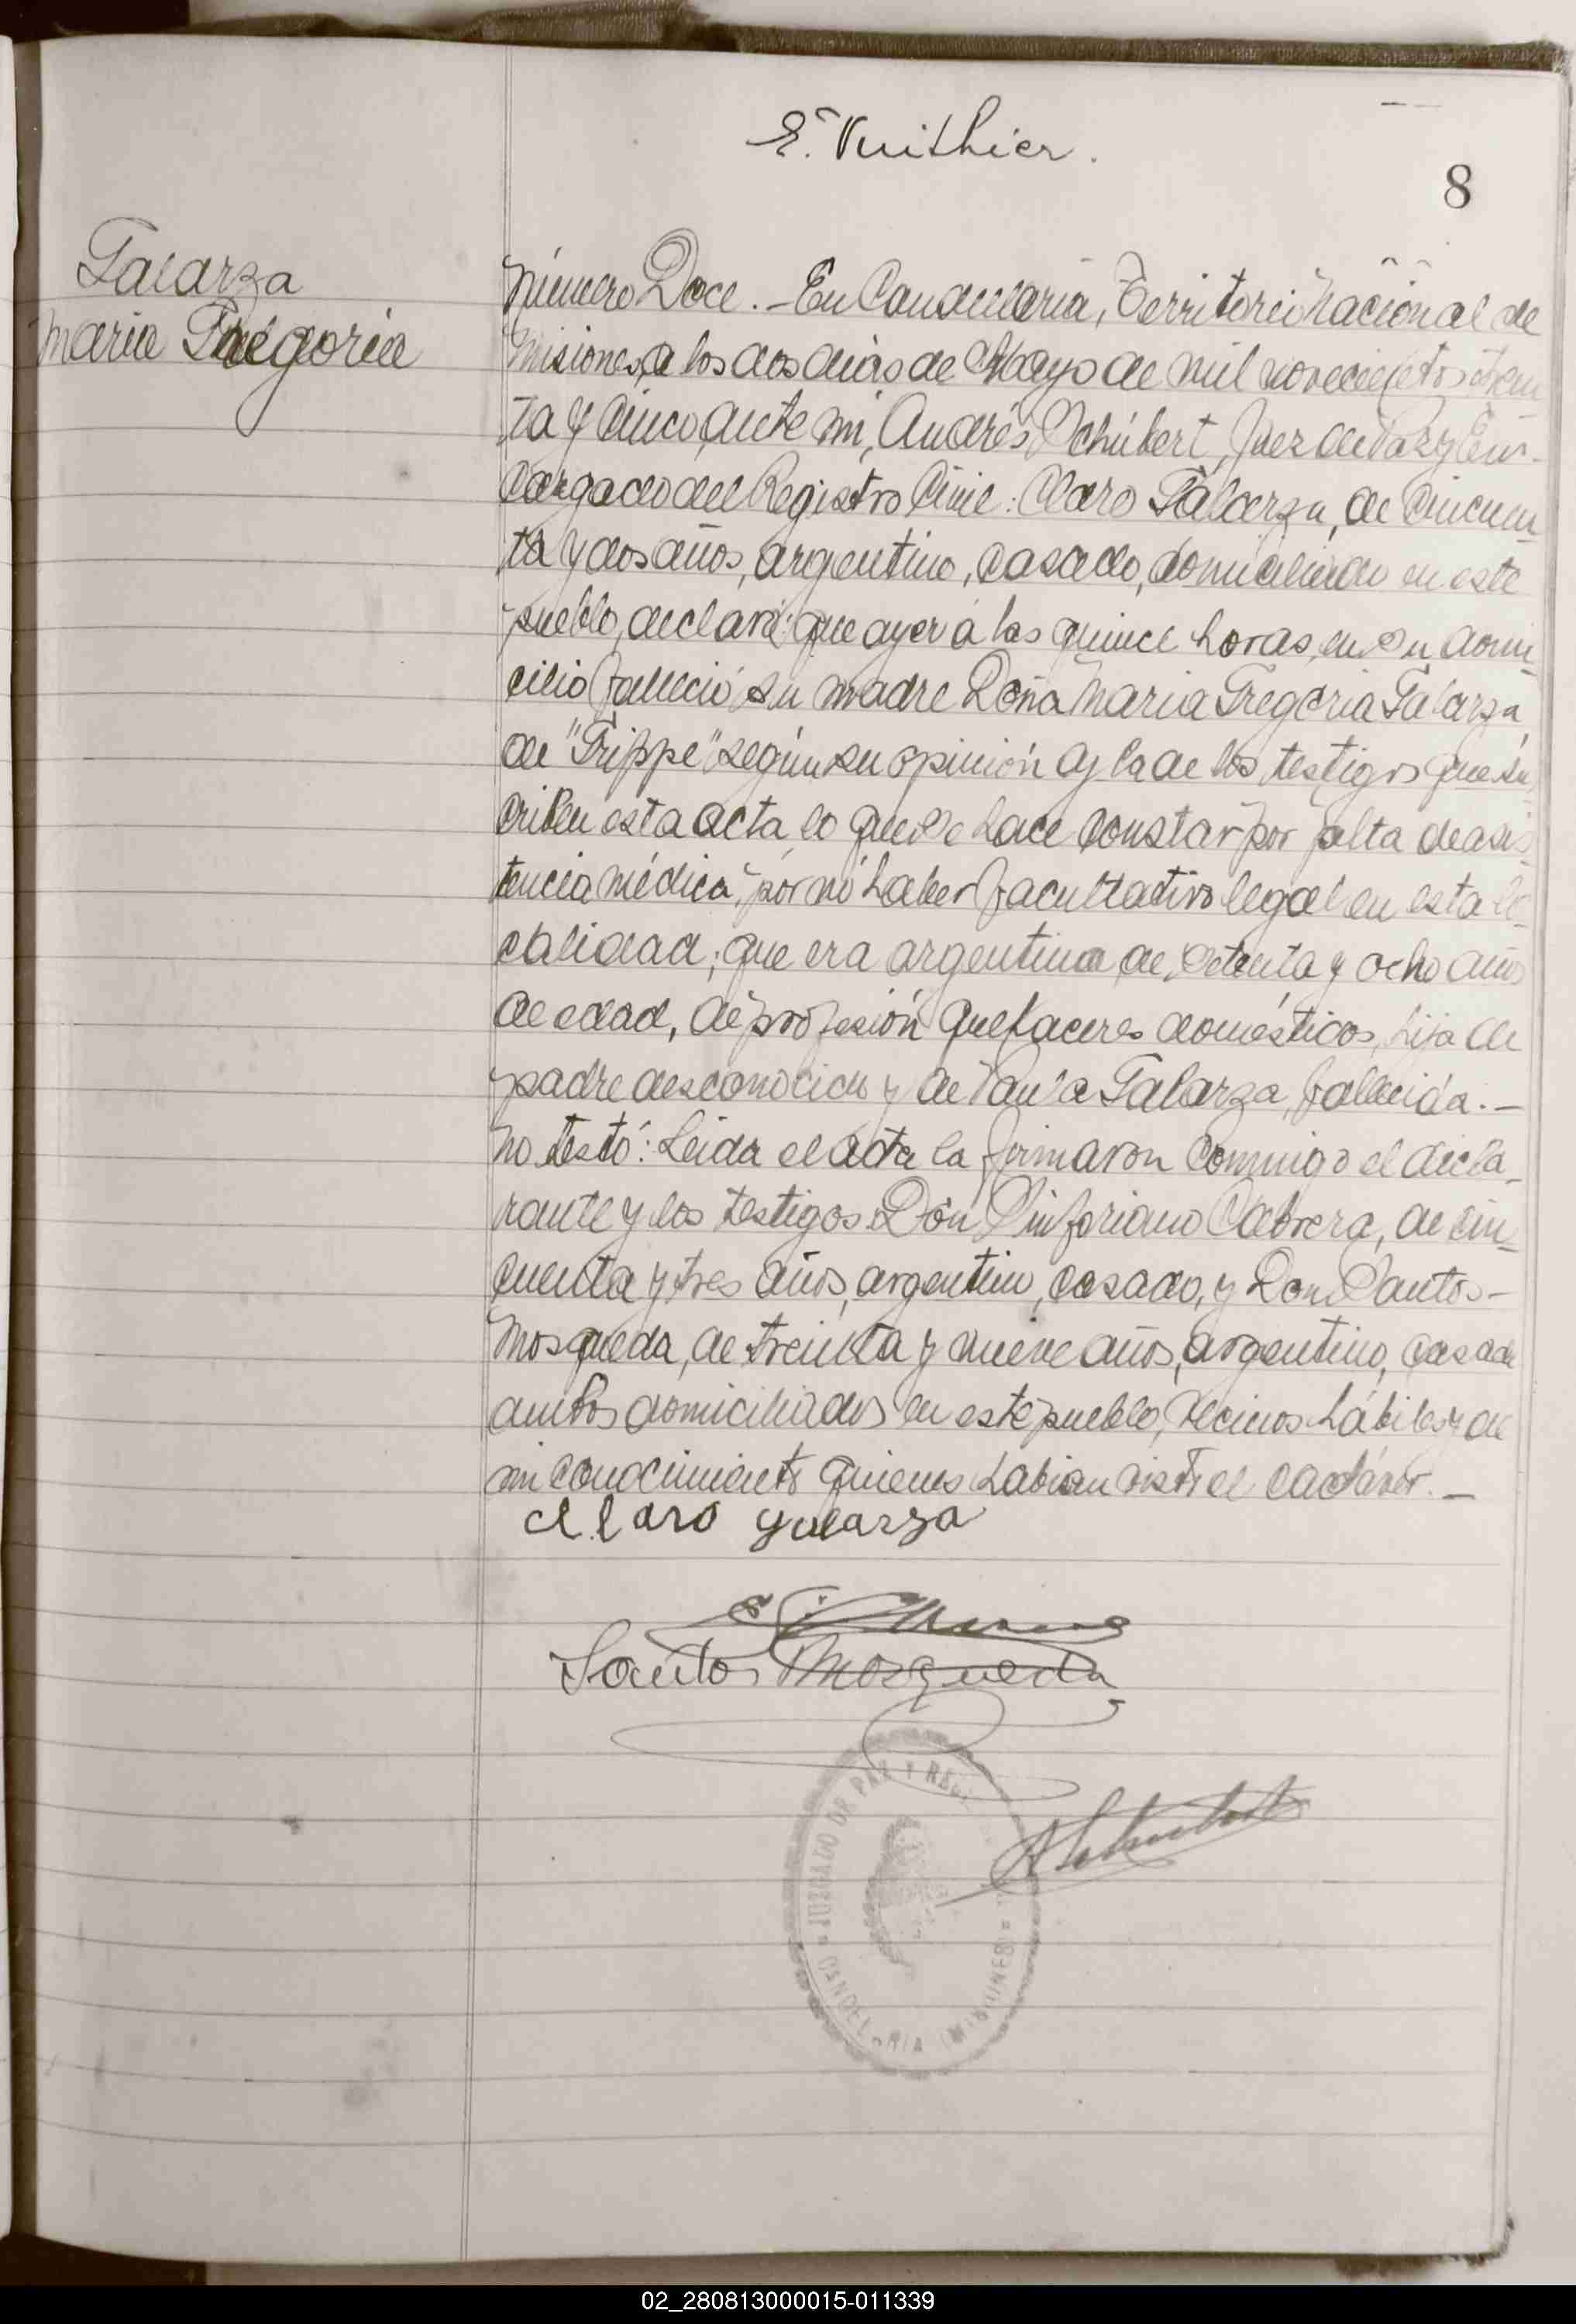 E. Vuithier.
8
Galarza
Maria Gregoria
Número Doce. - En Candelaria, Territorio Nacional de
Misiones, a los dos dias de Mayo de mil novecientos trein-
ta y cinco, ante mi, Andrés Schubert, Juez de Paz y En-
cargado del Registro Civil: Claro Galarza, de cincuen-
ta y dos años, argentino, casado, domiciliado en este
pueblo, declaró: que ayer á las quince horas, en su domi-
cilio falleció su madre Doña Maria Gregoria Galarza,
de "Grippe" según su opinión y la de los testigos que sus-
criben esta acta, lo que se hace constar por falta de asis-
tencia médica, por no haber facultativo legal en esta lo-
calidad; que era argentina de setenta y ocho años
de edad, de profesión quehaceres domésticos, hija de
padre desconocido y de Paula Galarza, fallecida. -
No testó: Leida el acta la firmaron conmigo el decla-
rante y los testigos: Don Sinforiano Cabrera, de cin-
cuenta y tres años, argentino, casado, y Don Santos -
Mosqueda, de treinta y nueve años, argentino, casado
ambos domiciliados en este pueblo, vecinos hábiles y de
mi conocimiento quienes habian visto el cadáver. -
Claro galarza
Santos Mosqueda
JUZGADO DE PAZ Y REG
CANDELARIA (MISIONES)
A Schubert
02_280813000015-011339